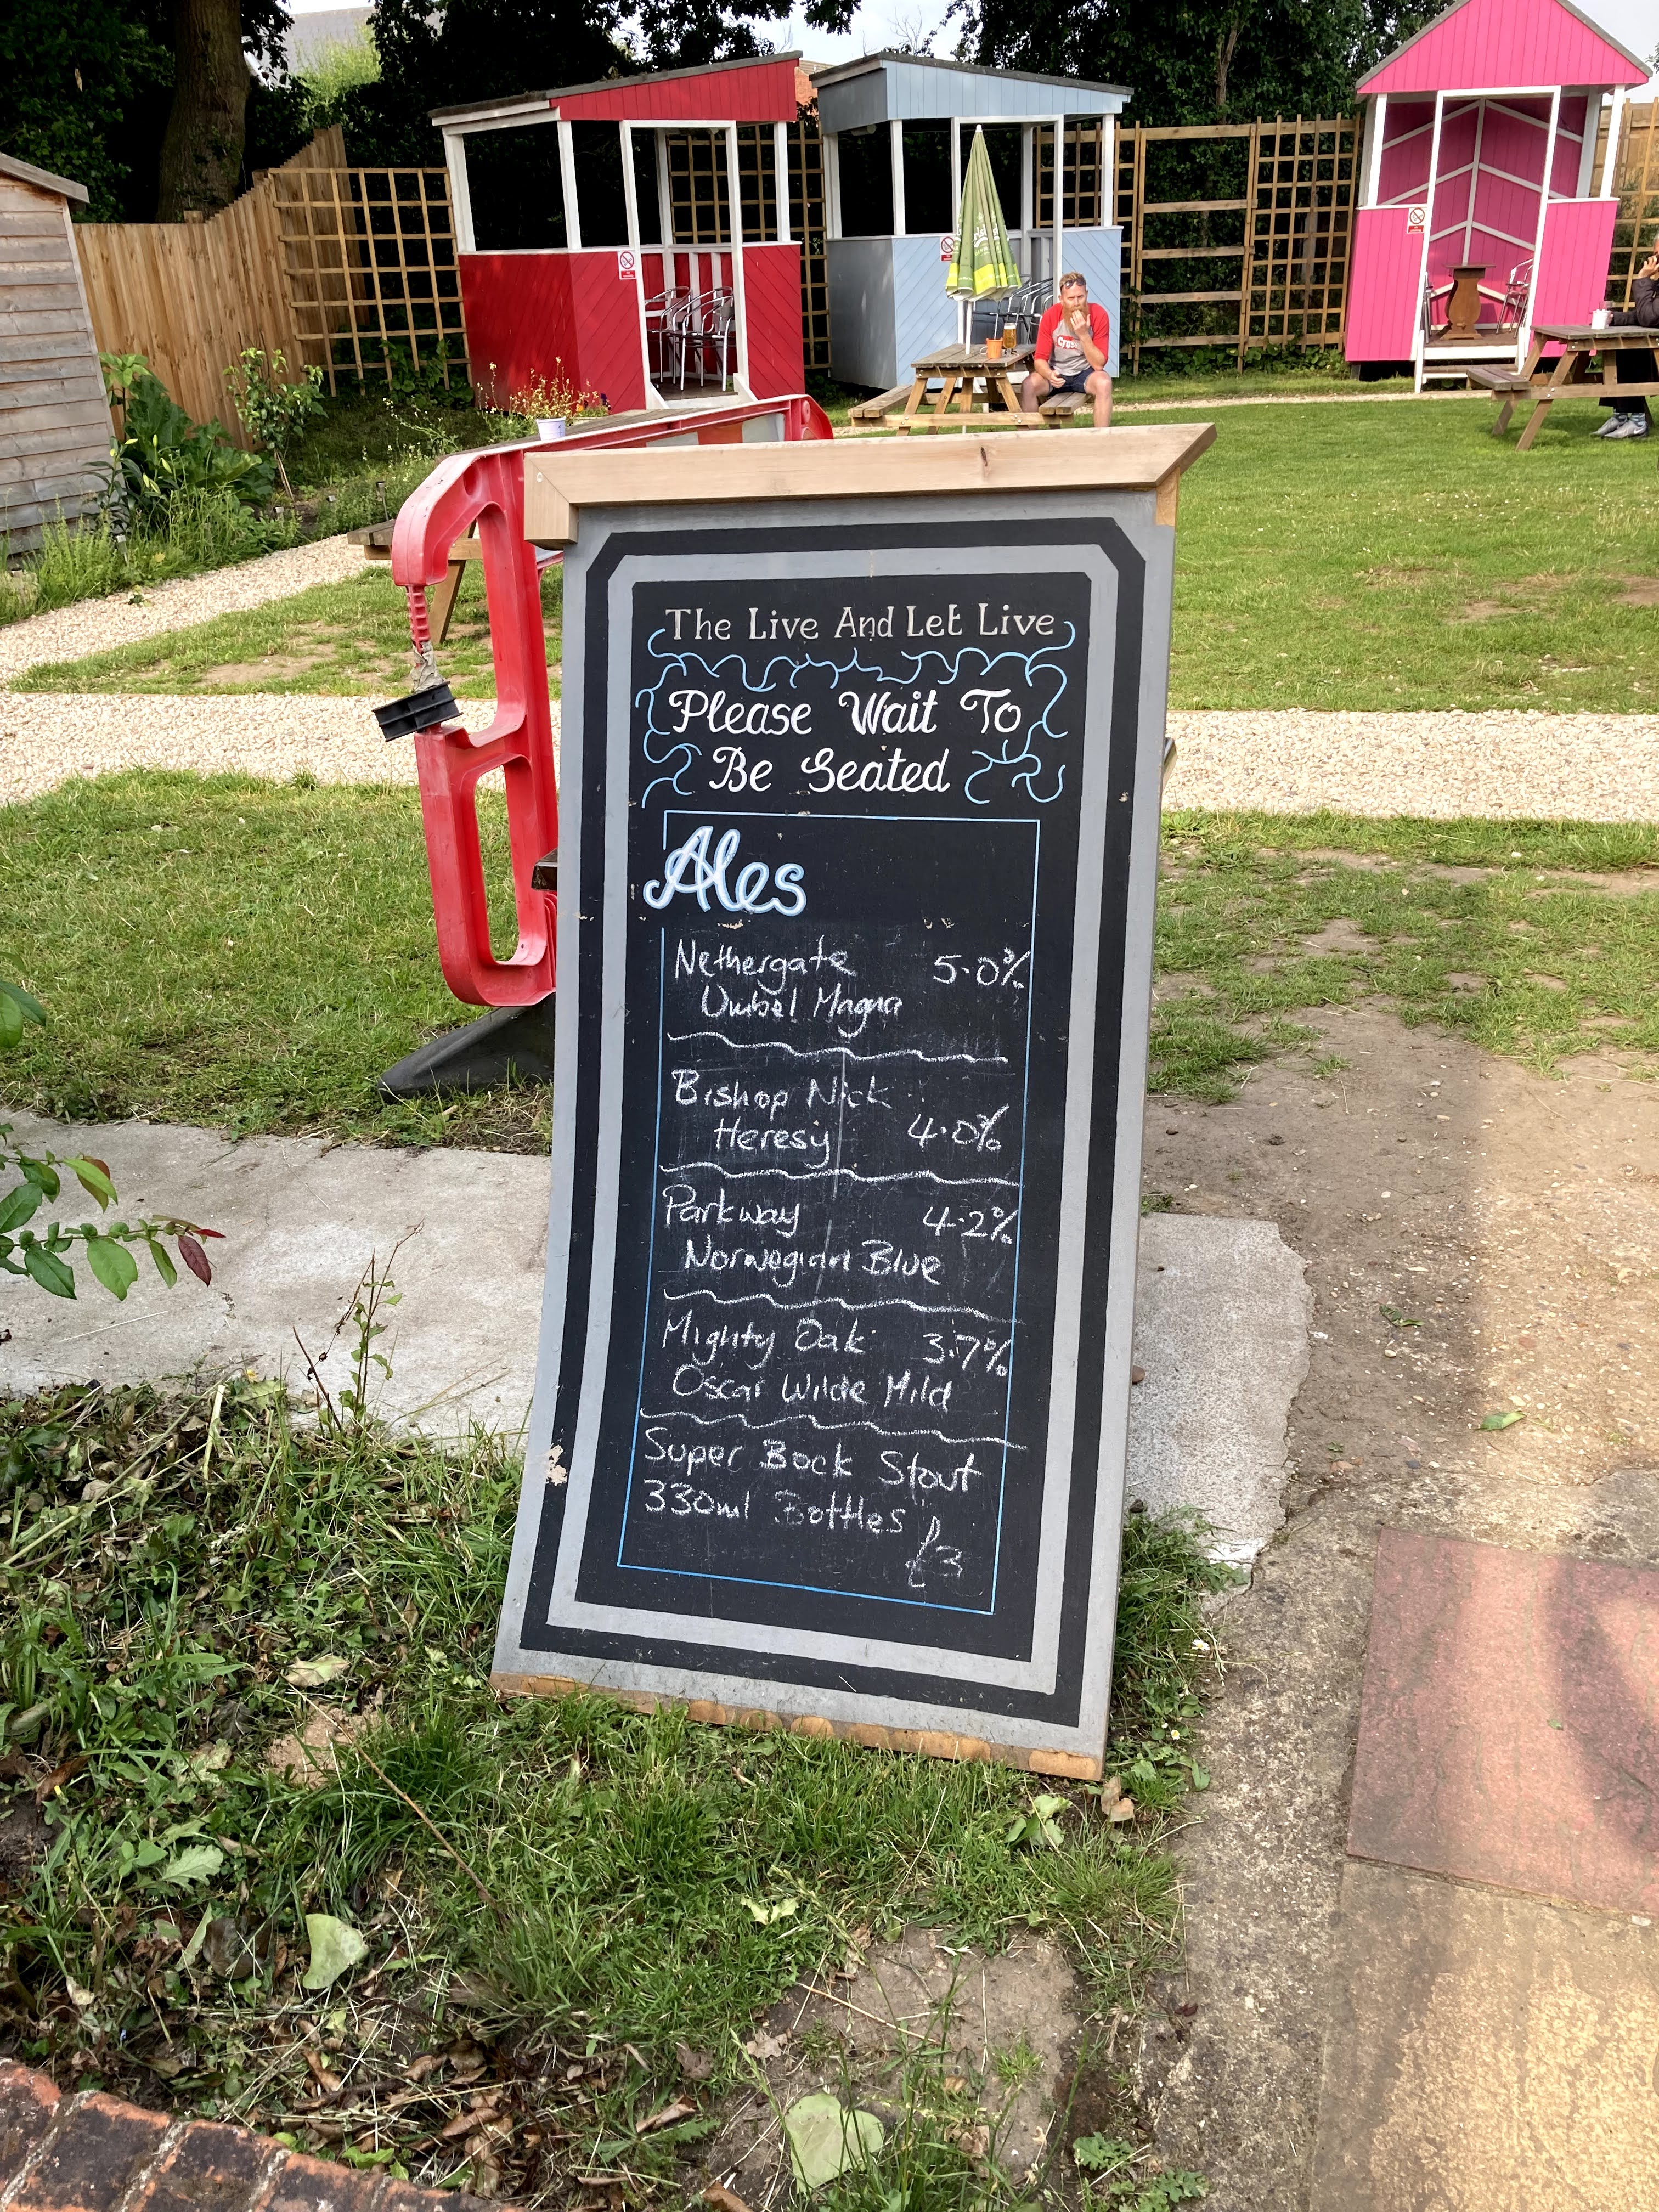 The Live And Let Live
Please Wait To
Be Seated
Ales
Nethergate 5.0%
Umbel Magna
Bishop Nick
Heresy 4.0%
Parkway 4.2%
Norwegian Blue
Mighty Oak 3.7%
Oscar Wilde Mild
Super Bock Stout
330ml Bottles
£3